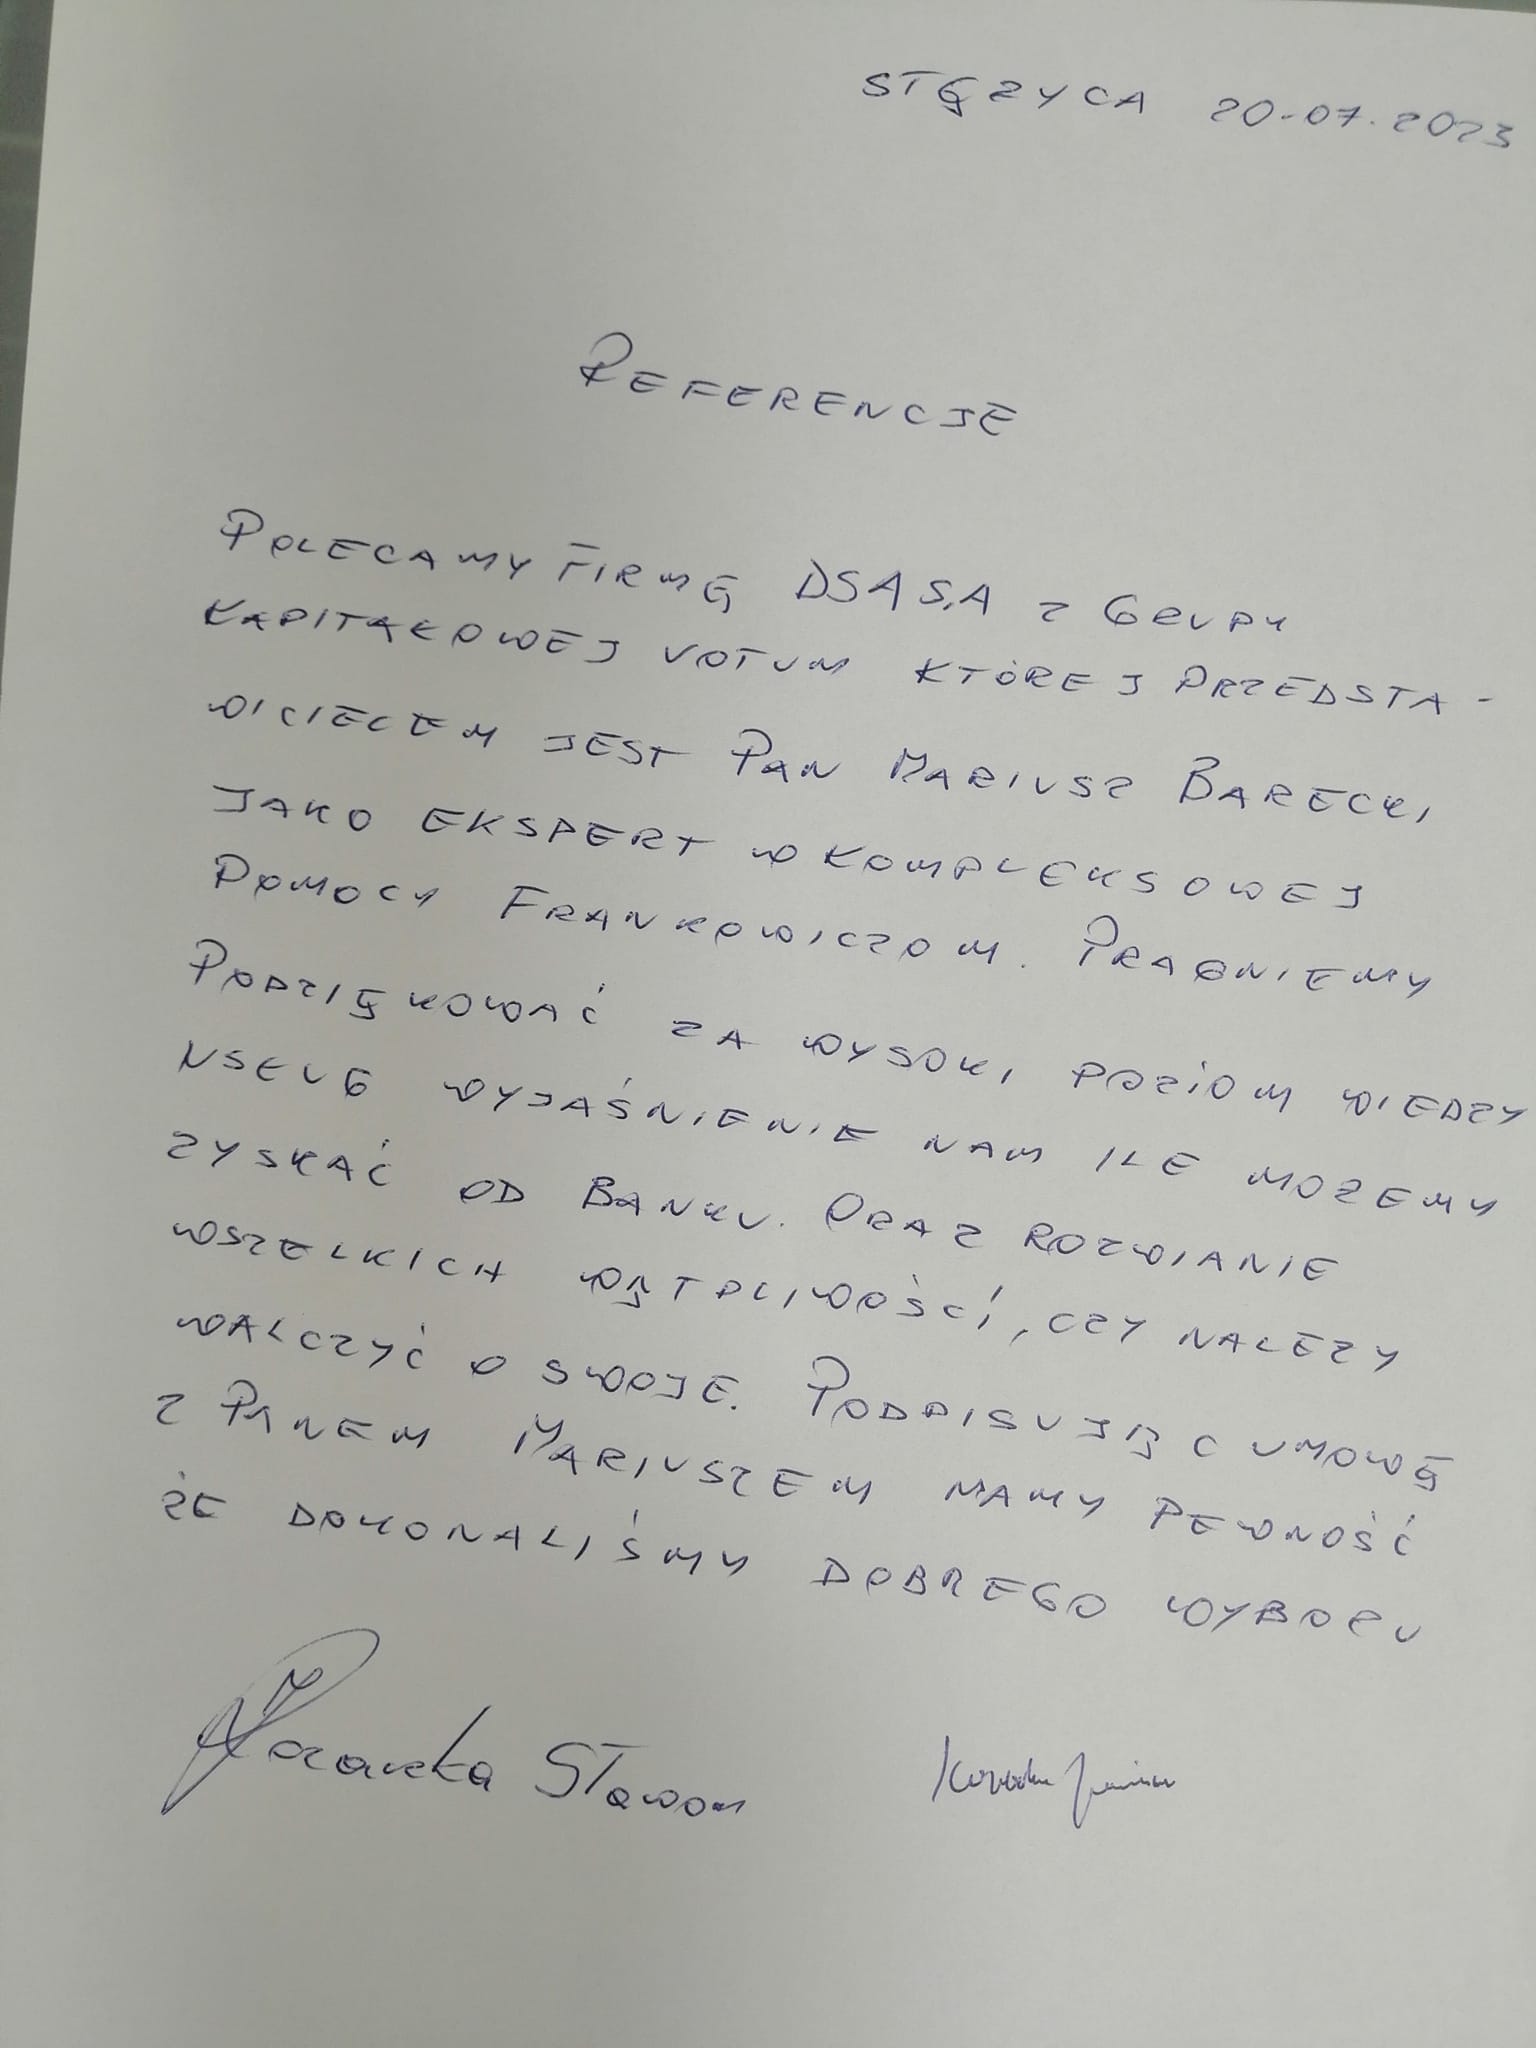 STĘZYCA 20-07.2023
REFERENCJE
POLECAMY FIRMĘ DSA S.A Z GRUPY
KAPITAŁOWEJ VOTUM KTÓREJ PRZEDSTA-
WICIELEM JEST PAN MARIUSZ BARECKI
JAKO EKSPERT W KOMPLEKSOWEJ
POMOCY FRANKOWICZOM. PRAGNIEMY
PODZIĘKOWAĆ ZA WYSOKI POZIOM WIEDZY
WYJAŚNIENIE NAM ILE MOZEMY
ZYSKAĆ OD BANKU. ORAZ ROZWIANIE
WSZELKICH WĄTPLIWOŚCI, CZY NALEZY
WALCZYĆ O SWOJE. PODPISUJĄC UMOWĘ
Z PANEM MARIUSZEM MAMY PEWNOŚĆ
ŻE DOKONALIŚMY DOBREGO WYBORU